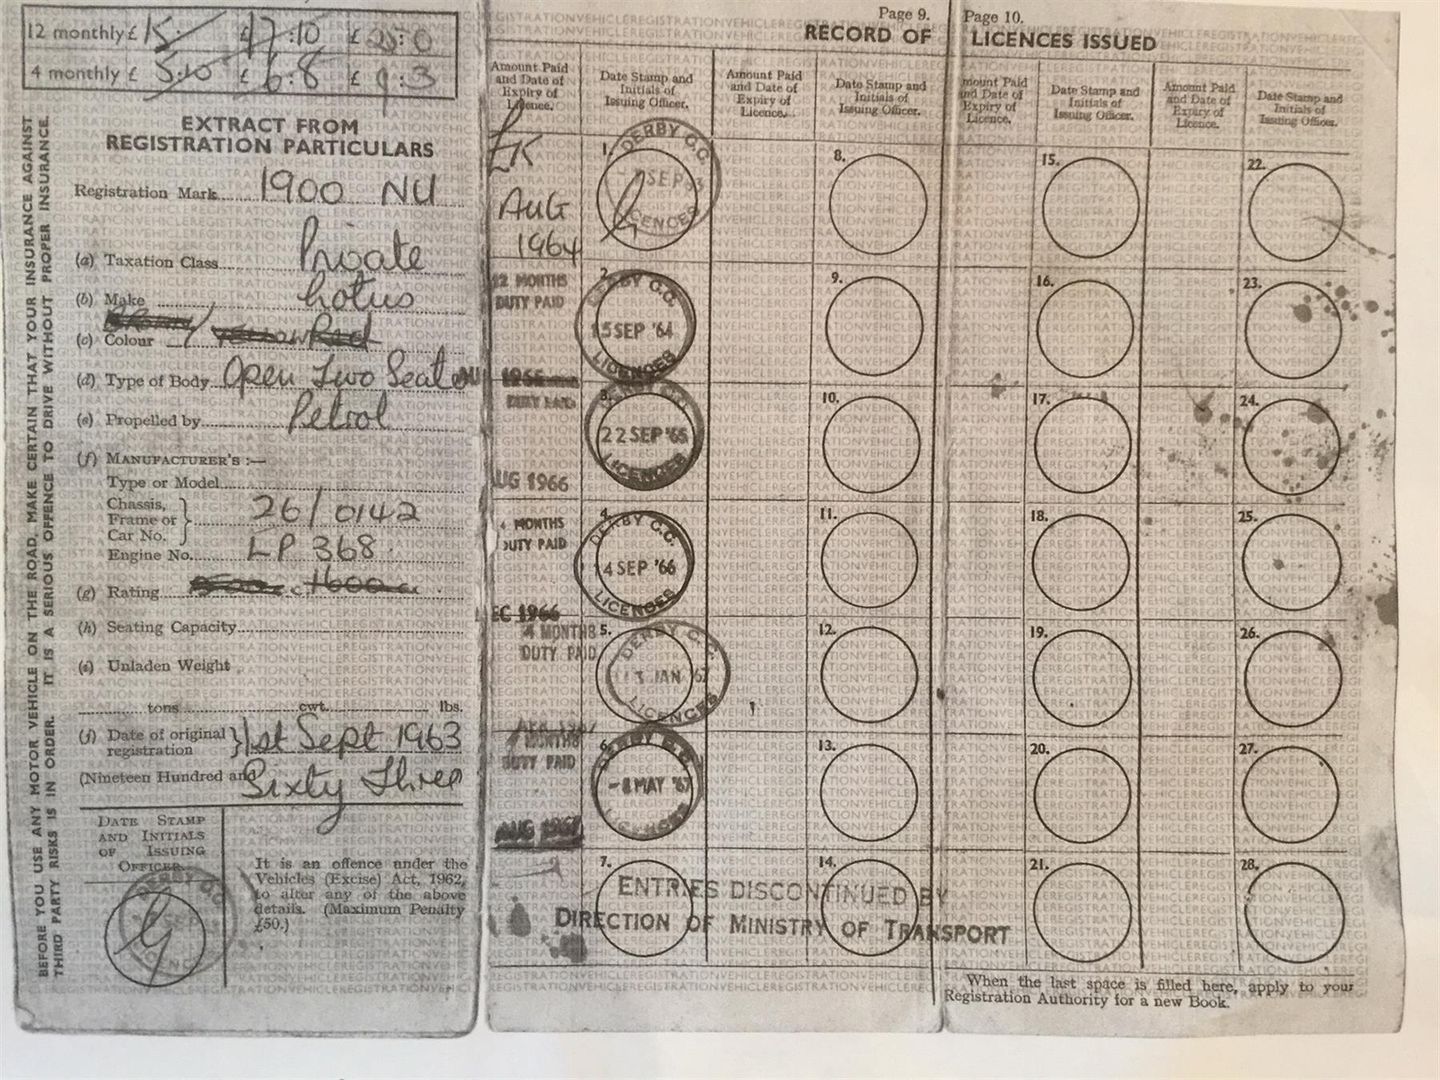 12 monthly £ 15: £ 17:10 £ 25:0
4 monthly £ 5:10 £ 6:8 £ 9:3
EXTRACT FROM
REGISTRATION PARTICULARS
Registration Mark 1900 NU
(a) Taxation Class Private
(b) Make Lotus
(c) Colour Red
(d) Type of Body Open Two Seater
(e) Propelled by Petrol
(f) MANUFACTURER'S :—
Type or Model
Chassis,
Frame or } 26/0142
Car No.
Engine No. LP 368
(g) Rating 1600
(h) Seating Capacity
(i) Unladen Weight
tons cwt. lbs.
(j) Date of original
registration } 1st Sept 1963
(Nineteen Hundred and Sixty Three
DATE STAMP
AND INITIALS
OF ISSUING
OFFICER
DERBY C.C.
LICENCES
It is an offence under the
Vehicles (Excise) Act, 1962,
to alter any of the above
details. (Maximum Penalty
£50.)
BEFORE YOU USE ANY MOTOR VEHICLE ON THE ROAD, MAKE CERTAIN THAT YOUR INSURANCE AGAINST
THIRD PARTY RISKS IS IN ORDER. IT IS A SERIOUS OFFENCE TO DRIVE WITHOUT PROPER INSURANCE.
Page 9.
RECORD OF
Page 10.
LICENCES ISSUED
Amount Paid
and Date of
Expiry of
Licence.
Date Stamp and
Initials of
Issuing Officer.
Amount Paid
and Date of
Expiry of
Licence.
Date Stamp and
Initials of
Issuing Officer.
mount Paid
and Date of
Expiry of
Licence.
Date Stamp and
Initials of
Issuing Officer.
Amount Paid
and Date of
Expiry of
Licence.
Date Stamp and
Initials of
Issuing Officer.
£15
AUG
1964
1.
DERBY C.C.
SEP
LICENCES
8.
15.
22.
12 MONTHS
DUTY PAID
AUG 1965
2.
DERBY C.C.
15 SEP '64
LICENCES
9.
16.
23.
DUTY PAID
AUG 1966
3.
DERBY C.C.
22 SEP '65
LICENCES
10.
17.
24.
4 MONTHS
DUTY PAID
EC 1966
4.
DERBY C.C.
14 SEP '66
LICENCES
11.
18.
25.
4 MONTHS
DUTY PAID
APR 1967
5.
DERBY C.C.
JAN 67
LICENCES
12.
19.
26.
MONTHS
DUTY PAID
AUG 1967
6.
DERBY
-8 MAY '67
LICENCES
13.
20.
27.
7.
14.
21.
28.
ENTRIES DISCONTINUED BY
DIRECTION OF MINISTRY OF TRANSPORT
When the last space is filled here, apply to your
Registration Authority for a new Book.